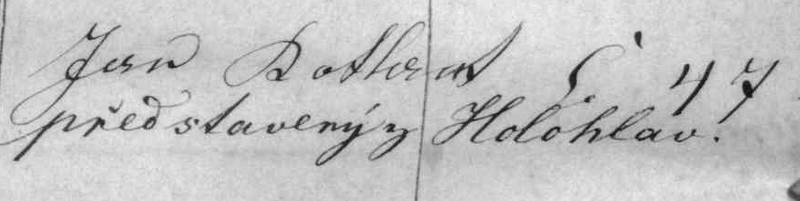 Jan Rotkant Č 47
představený z Holohlav.